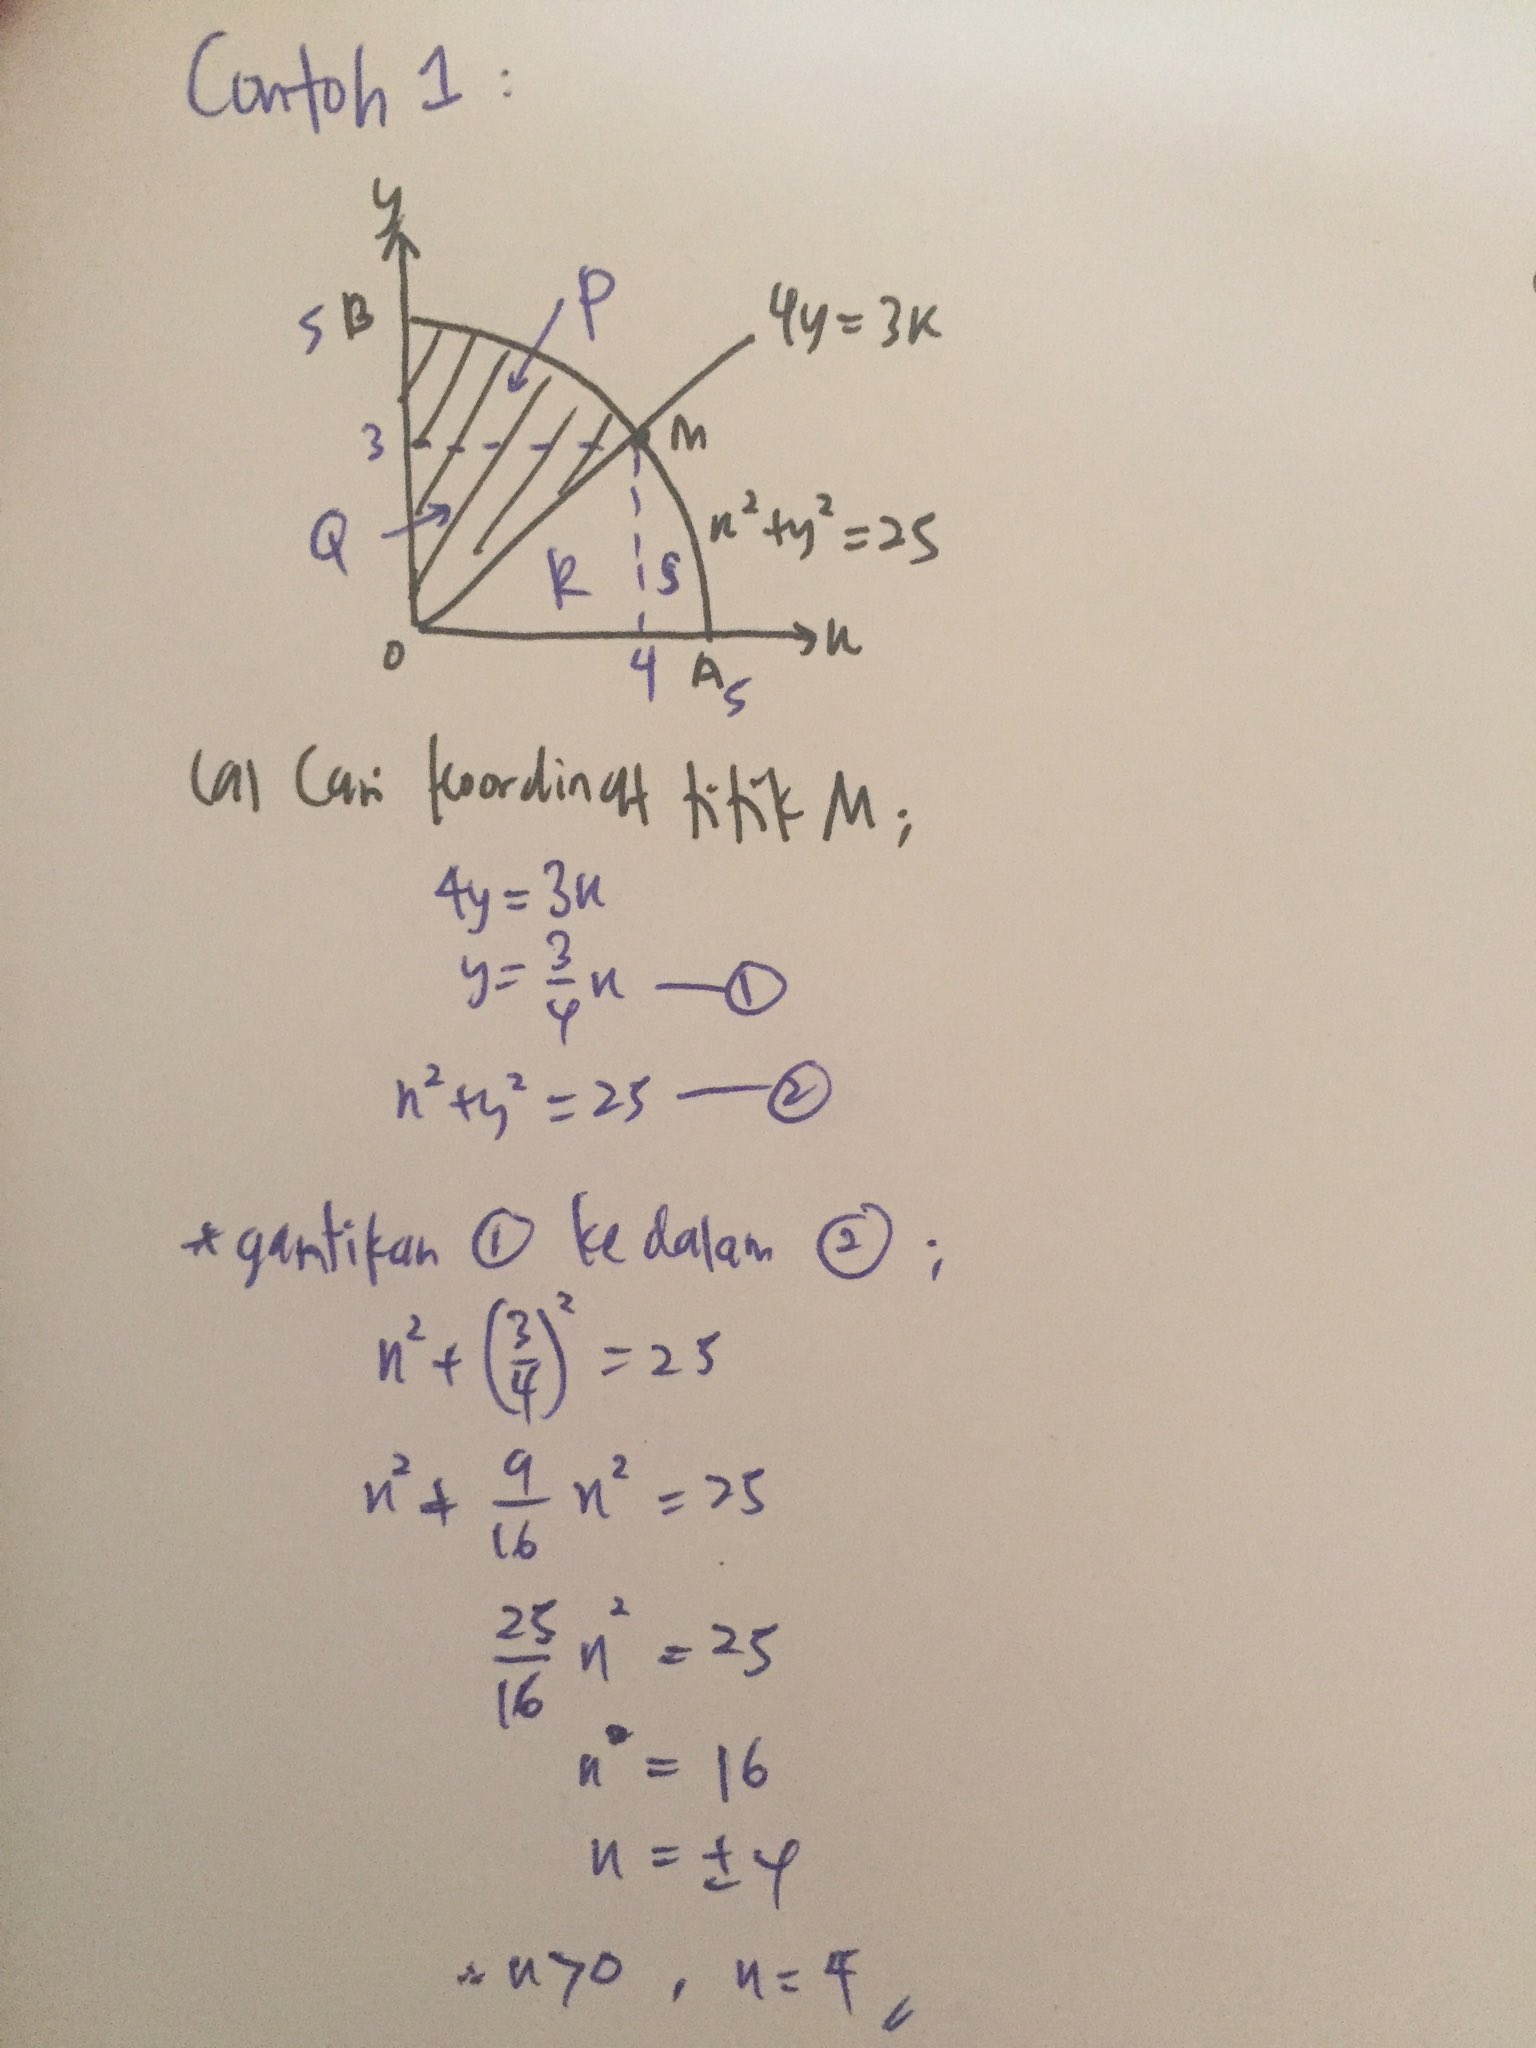 Contoh 1 :
y
P
4y = 3x
5 B
3
M
Q
x² + y² = 25
R
S
O
4
A
5
x
(a) Cari koordinat titik M ;
4y = 3x
y = 3/4 x — ①
x² + y² = 25 — ②
* gantikan ① ke dalam ② ;
x² + (3/4)² = 25
x² + 9/16 x² = 25
25/16 x² = 25
x² = 16
x = ± 4
∴ x > 0 , x = 4